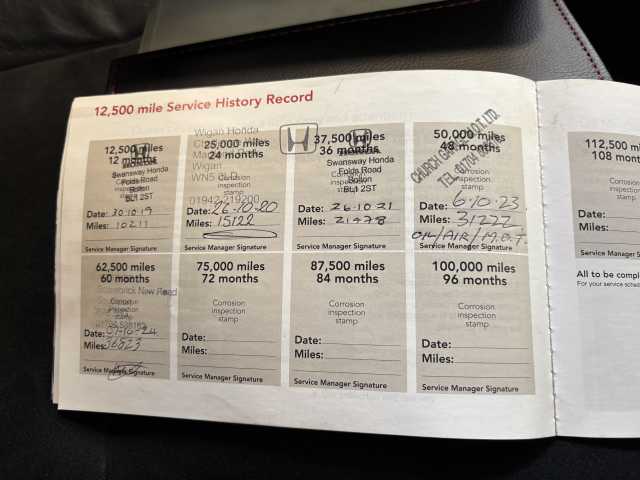 12,500 mile Service History Record
12,500 miles
12 months
Swansway Honda
Folds Road
Bolton
BL1 2ST
Date: 30·10·19
Miles: 10211
Service Manager Signature
Wigan Honda
25,000 miles
24 months
Wigan
WN5 0LD
Corrosion
inspection
stamp
01942 219200
Date: 26·10·20
Miles: 15122
Service Manager Signature
37,500 miles
36 months
Swansway Honda
Folds Road
Bolton
BL1 2ST
Date: 26·10·21
Miles: 21478
Service Manager Signature
50,000 miles
48 months
Corrosion
inspection
stamp
Date: 6·10·23
Miles: 31222
OIL/AIR/M.O.T.
Service Manager Signature
112,500 mi
108 mont
Corrosion
inspection
stamp
Date:
Miles:
Service Manager S
62,500 miles
60 months
New Road
Corrosion
inspection
stamp
Date: 24
Miles: 36523
Service Manager Signature
75,000 miles
72 months
Corrosion
inspection
stamp
Date:
Miles:
Service Manager Signature
87,500 miles
84 months
Corrosion
inspection
stamp
Date:
Miles:
Service Manager Signature
100,000 miles
96 months
Corrosion
inspection
stamp
Date:
Miles:
Service Manager Signature
All to be compl
For your service sched